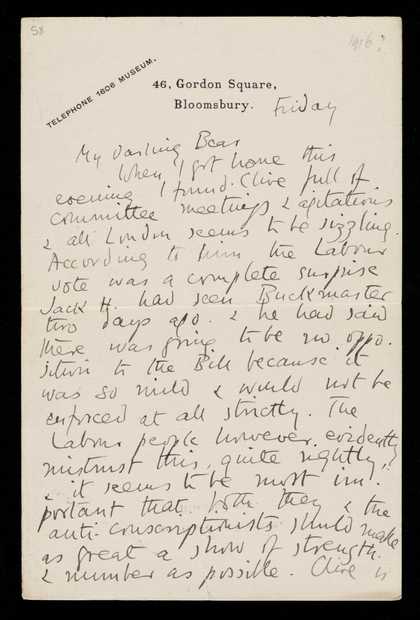 58
1916?
TELEPHONE 1808 MUSEUM.
46, Gordon Square,
Bloomsbury.
Friday
My darling Bear
When I got home this
evening I found Clive full of
committee meetings & agitations
& all London seems to be sizzling.
According to him the Labour
vote was a complete surprise
Jack H. had seen Buckmaster
two days ago. & he had said
there was going to be no oppo-
sition to the Bill because it
was so mild & would not be
enforced at all strictly. The
Labour people however evidently
mistrust this, quite rightly,
& it seems to be most im-
portant that both they & the
anti-conscriptionists should make
as great a show of strength
& number as possible. Clive is